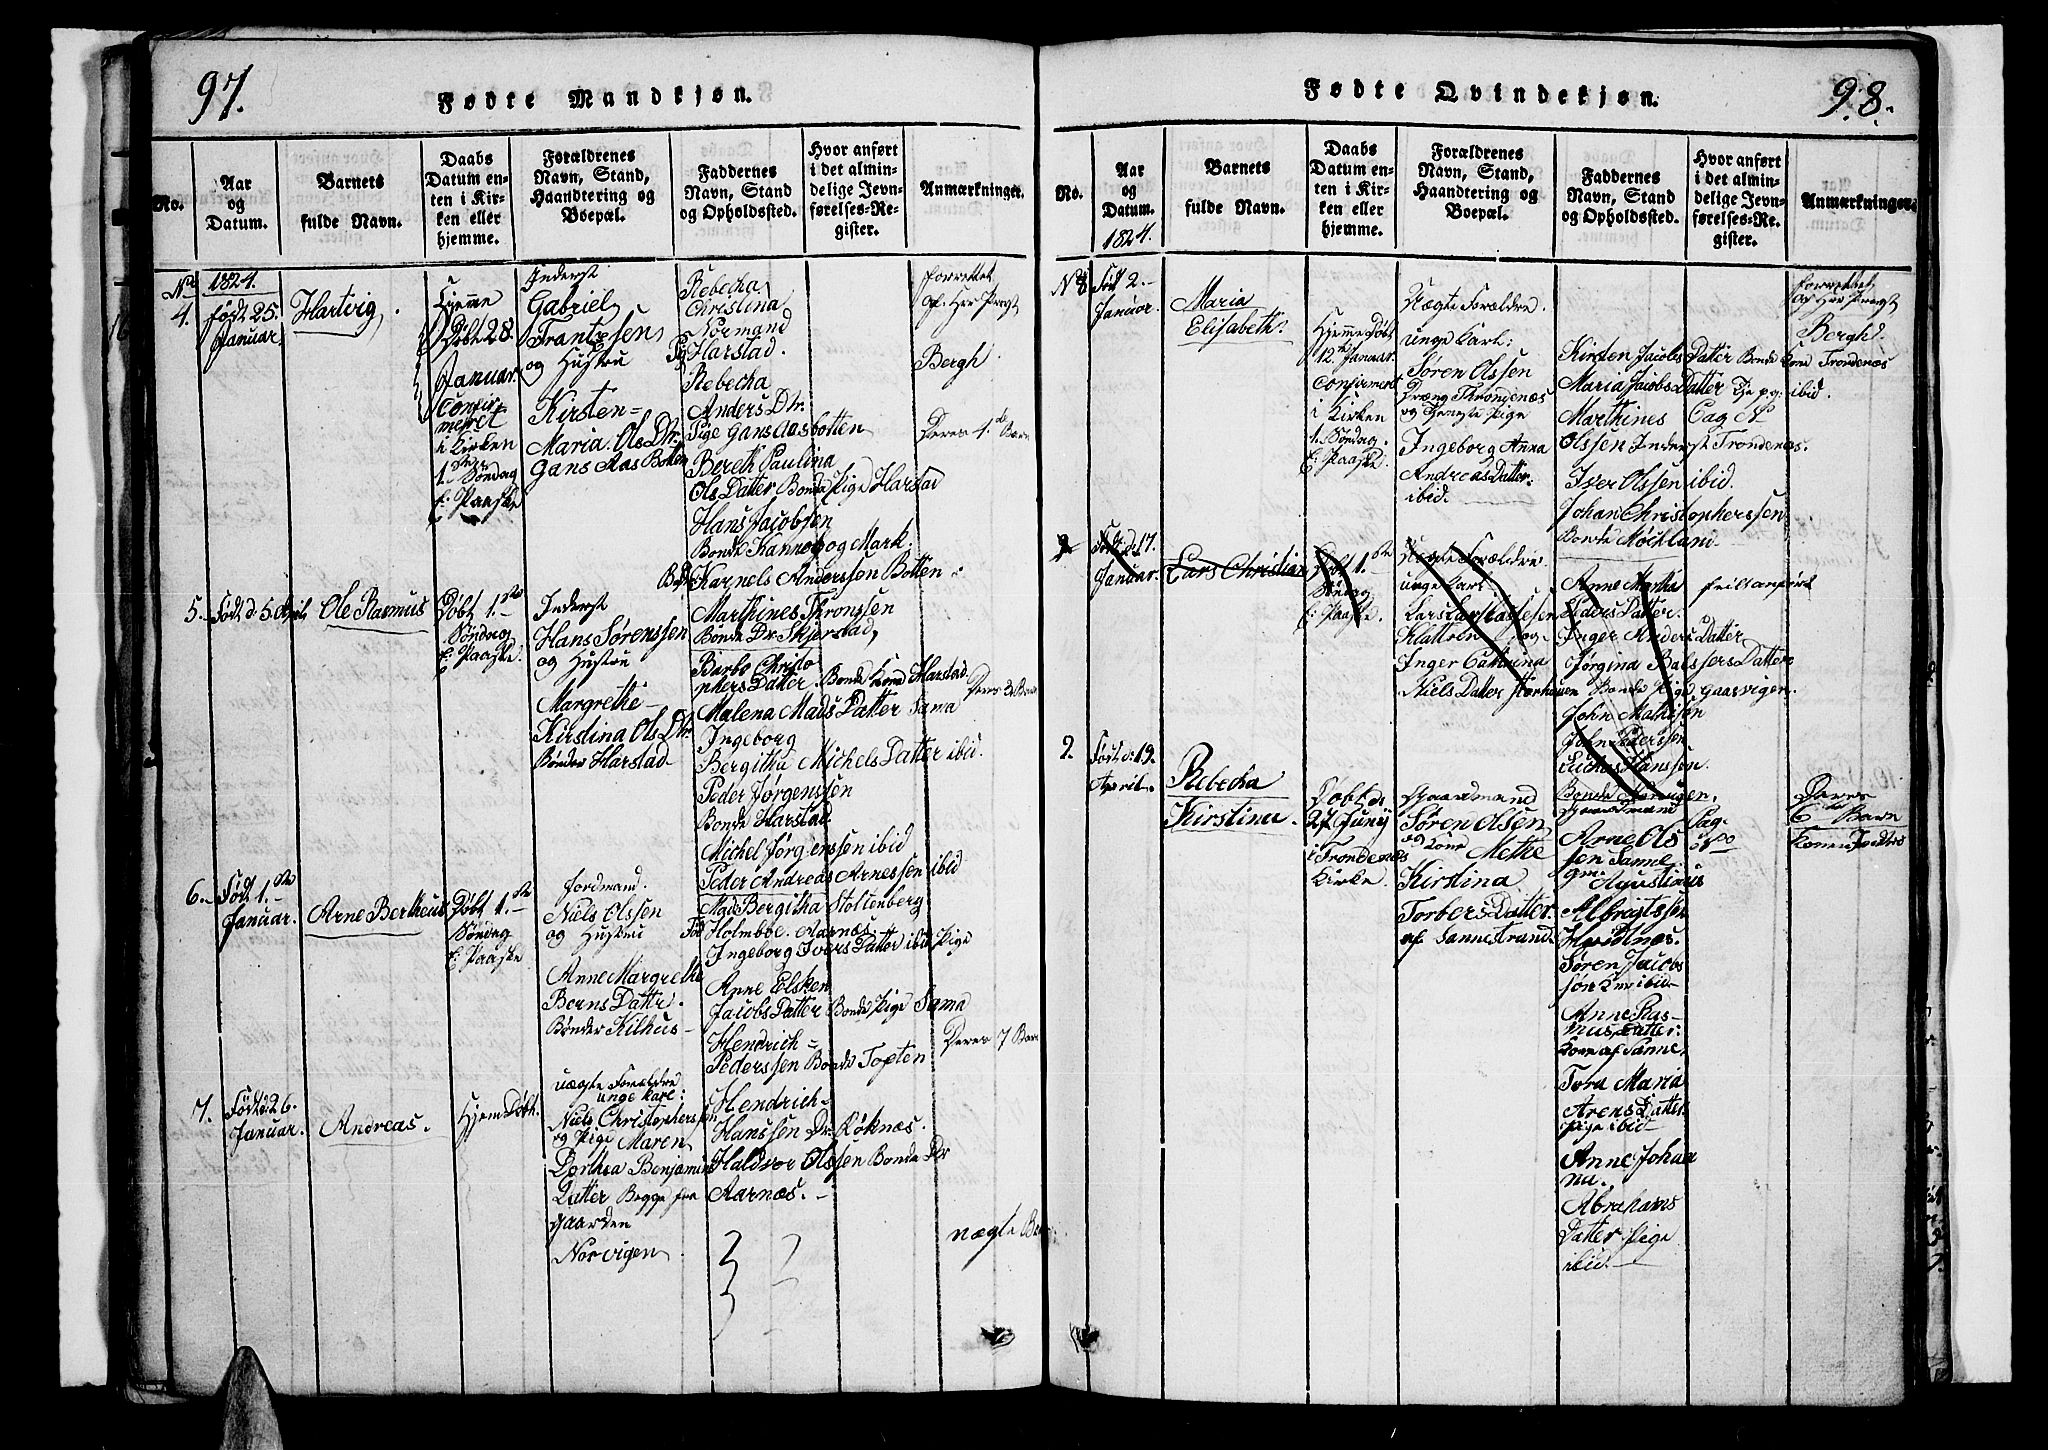 97.
Fødte Mandkjøn.
No.
Aar
og
Datum.
Barnets
fulde Navn.
Daabs
Datum en-
ten i Kir-
ken eller
hjemme.
Forældrenes
Navn, Stand,
Haandtering og
Boepæl.
Faddernes
Navn, Stand
og Opholdssted.
Hvor anført
i det almin-
delige Jevn-
førelses-Re-
gister.
Anmærkninger.
No
4.
1824.
født 25.
Januar
Hartvig
Hjemme
Døbt 28.
Januar
Confir-
meret
i Kirken
1ste Søndag
E: Paaske
Inderst
Gabriel
Frantzsen
og Hustru
Kirsten=
Maria Ols Dtr.
Gans Aas Botten
Rebecha
Christina
Normand
Pig Harstad.
Rebecha
Anders Dtr.
Pige Gans Aasbotten
Bereth Paulina
Ols Datter Bonde Pige Harstad
Hans Jacobsen
Bonde Kannebogmark.
Karnels Anderssen Botten
forrettet
af Hr Pragt
Bergh.
Deres 1de Barn
5.
Født d 5. April
Ole Rasmus
Døbt 1.ste
Søndag
E: Paaske.
Inderst
Hans Sørenssen
og Hustru
Margrethe
Kirstina Ols Dtr
Bønder Harstad
Marthines Thronssen
Bonde Dr. Skjerstad,
Barbo Christo
phers Datter Bonde Kone Harstad
Malena Mads Datter Sama
Ingeborg
Bergitha Michels Datter ibid.
Peder Jørgenssen
Bonde Harstad
Michel Jørgenssen ibid
Peder Andreas Arnessen ibid
Deres 3 Barn
6.
Født 1.ste
Januar.
Arne Bertheus
Døbt 1.ste
Søndag
E: Paaske
Jordmand.
Niels Olssen
og Hustru
Anne Margrethe
Berns Dattr.
Bønder Kilhus
Mad. Bergitha Stoltenberg
Holmboe. Aarnæs.
Ingeborg Ivers Datter ibid Pige
Anne Elsken
Jacobs Datter Bonde Pige Sama
Hendrich=
Pederssen Bonde Topten
Deres 7 Barn
7.
Født d: 26.
Januar.
Andreas.
Hjem Døbt.
uægte Forældre
unge Karl:
Niels Christophersen
og Pige Maren
Dorthea Benjamins
Datter Begge fra
Gaarden
Norvigen
Hendrich
Hanssen Dr. Røknæs.
Haldvor Olssen Bonde Dr
Aarnæs.
uægte Barn
Fødte Qvindekjøn.
98.
No.
Aar
og
Datum.
1824.
Barnets
fulde Navn.
Daabs
Datum en-
ten i Kir-
ken eller
hjemme.
Forældrenes
Navn, Stand,
Haandtering og
Boepæl.
Faddernes
Navn, Stand
og Opholdssted.
Hvor anført
i det almin-
delige Jevn-
førelses-Re-
gister.
Anmærkninger.
No 8
Født 2.
Januar.
Maria
Elisabeth.
Hjemme Døbt
12te Januar.
Confirmert
i Kirken
1. Søndag
E: Paaske.
Uægte Forældre.
unge Karl:
Søren Olssen
Dræng Throndenæs
og Tjeneste Pige
Ingeborg Anna
Andreas Datter.
ibid.
Kirsten Jacobs Datter Bonde Kone Trondenæs
Maria Jacobs Datter Tje pg: ibid.
Marthines
Olssen Inderst Trondenæs.
Iver Olssen ibid.
Johan Christopherssen
Bonde Møkland
forrettet
af Hr Pragt
Bergh.
9
Født d: 17.
Januar.
Lars Christian
Døbt 1.ste
Søndag
E: Paaske.
Uægte Forældre
unge Karl
Klattren og
Inger Cathrina
Niels Datter Storhauen
Anne Martha
Peders Datter.
Inger Anders Datter
Jørgina Balssers Datter
Bonde Pige Gaasvigen.
John Mathisen
John Pedersen
Luchas Hanssen.
feil anført
9.
Født d: 19.
April
Rebecha
Kirstina.
Døbt d:
27 Juny
i Trondenæs
Kirke.
Gaardmand
Søren Olsen
og Kone Methe
Kirstina
Torbers Datter
af Sannestrand.
Gaardmand
Arne Ols
sen Sanne
gm: Agustinus
Albregtssen
Søren Jacobs
søn ibid
Anne Ras-
mus Datter
Kone af Sanne,
Tora Maria
Arens Datter
Pige ibid
Anne Johan
na.
Abrahams
Datter Pige
ibid.
Deres
6 Barn